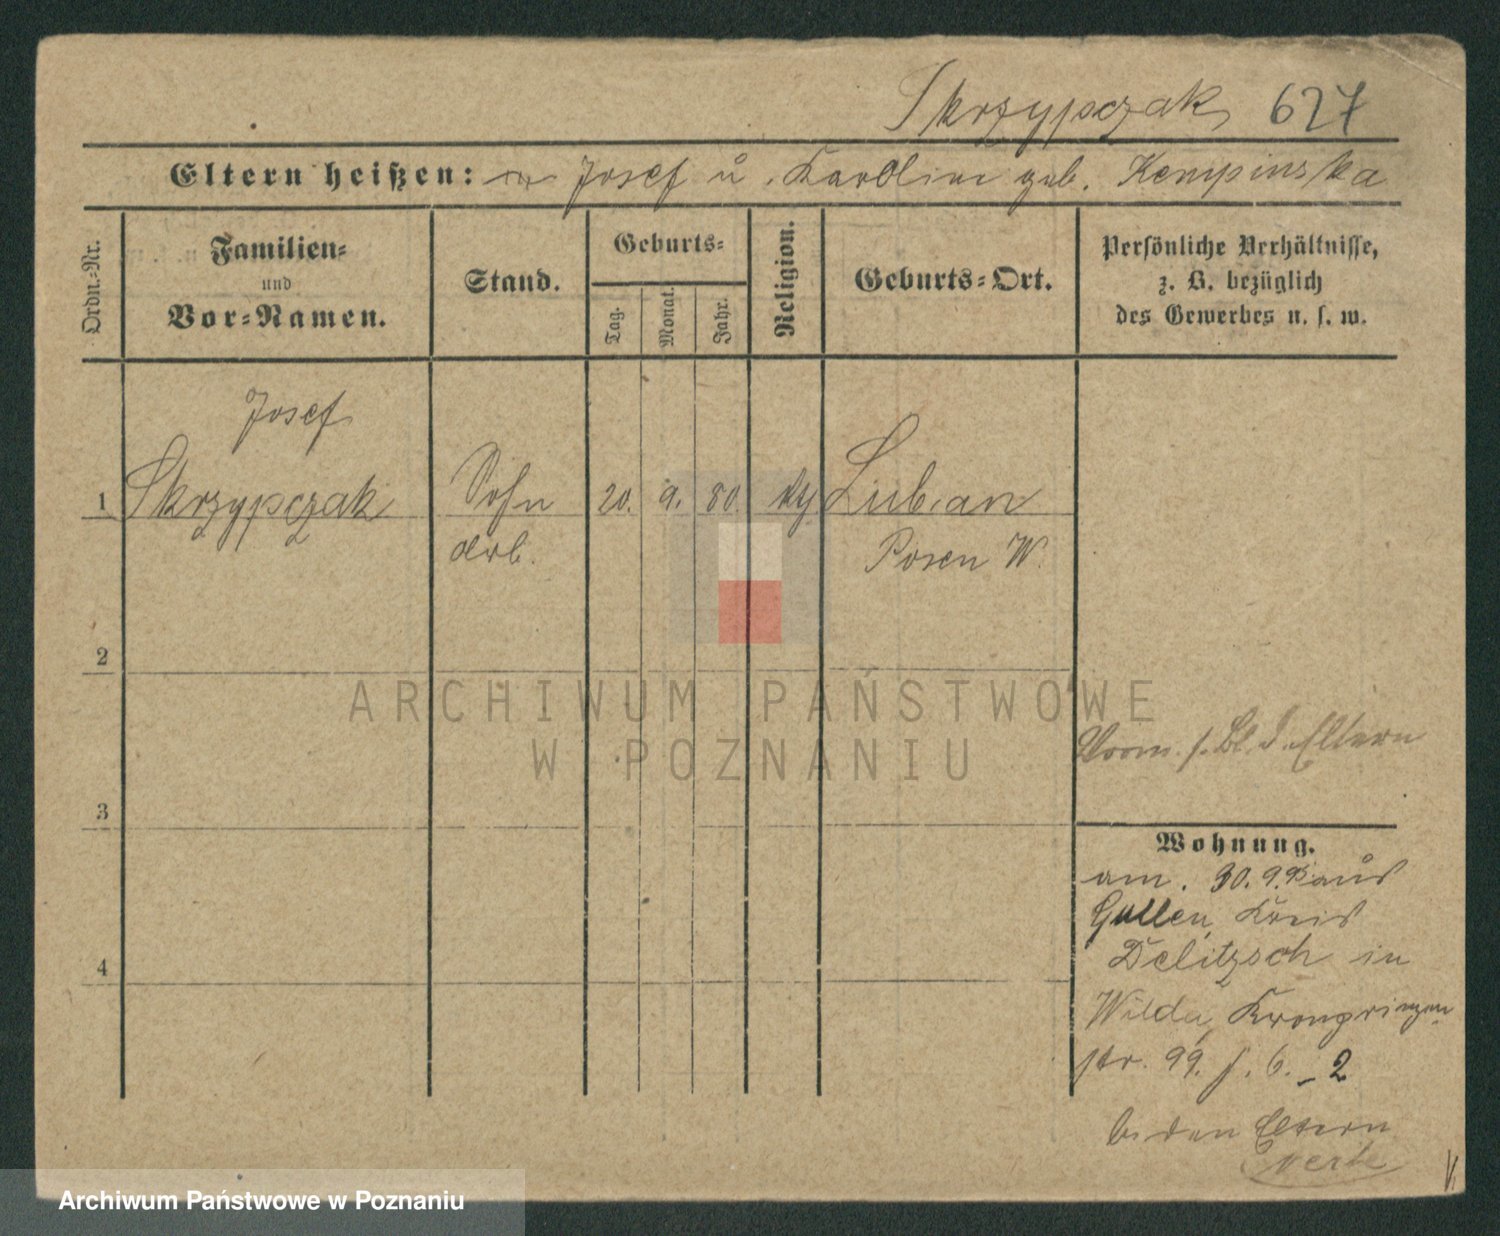 Skrzypczak 627
Eltern heißen: Josef u. Karoline geb. Kempinska
Ordn.-Nr.
Familien-
und
Vor-Namen.
Stand.
Geburts-
Tag.
Monat.
Jahr.
Religion.
Geburts-Ort.
Persönliche Verhältnisse,
z. B. bezüglich
des Gewerbes u. s. w.
Josef
1 Skrzypczak Sohn 20. 9. 80. Luban
Posen W.
2
ARCHIWUM PAŃSTWOWE
W POZNANIU
s. Bl. d. Eltern
3
Wohnung.
am. 30. 9. aus
Gollen, Kreis
4
Delitzsch in
Wilda, Kronprinzen
str. 99. 6. - 2
b. den Eltern
verte
Archiwum Państwowe w Poznaniu